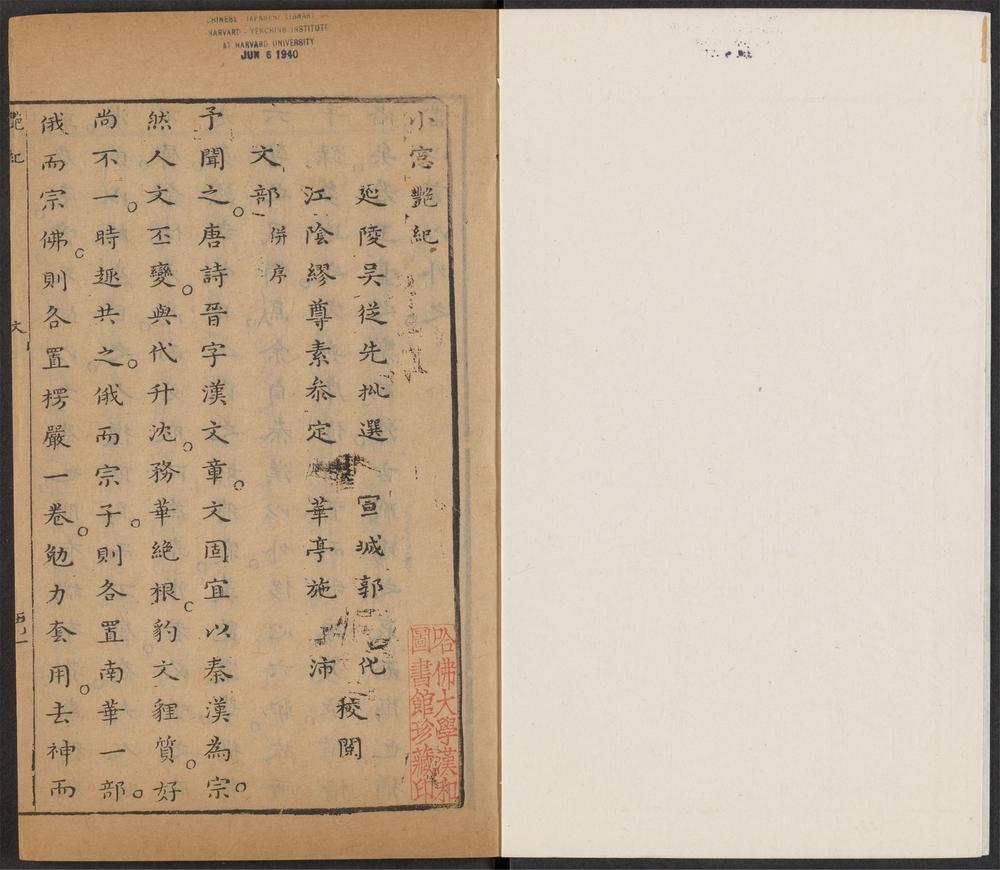 CHINESE - JAPANESE LIBRARY
HARVARD - YENCHING INSTITUTE
AT HARVARD UNIVERSITY
JUN 6 1940
小窓艷紀
延陵吳從先批選
宣城郭化
江陰繆尊素叅定
華亭施沛
稜閱
文部 併序
予聞之。唐詩晉字漢文章。文固宜以秦漢為宗。
然人文丕變。與代升沈。務華絶根。豹文貍質。好
尚不一。時趣共之。俄而宗子。則各置南華一部。
俄而宗佛。則各置楞嚴一卷。勉力套用。去神而
艷紀
文
哈佛大學漢和
圖書館珍藏印